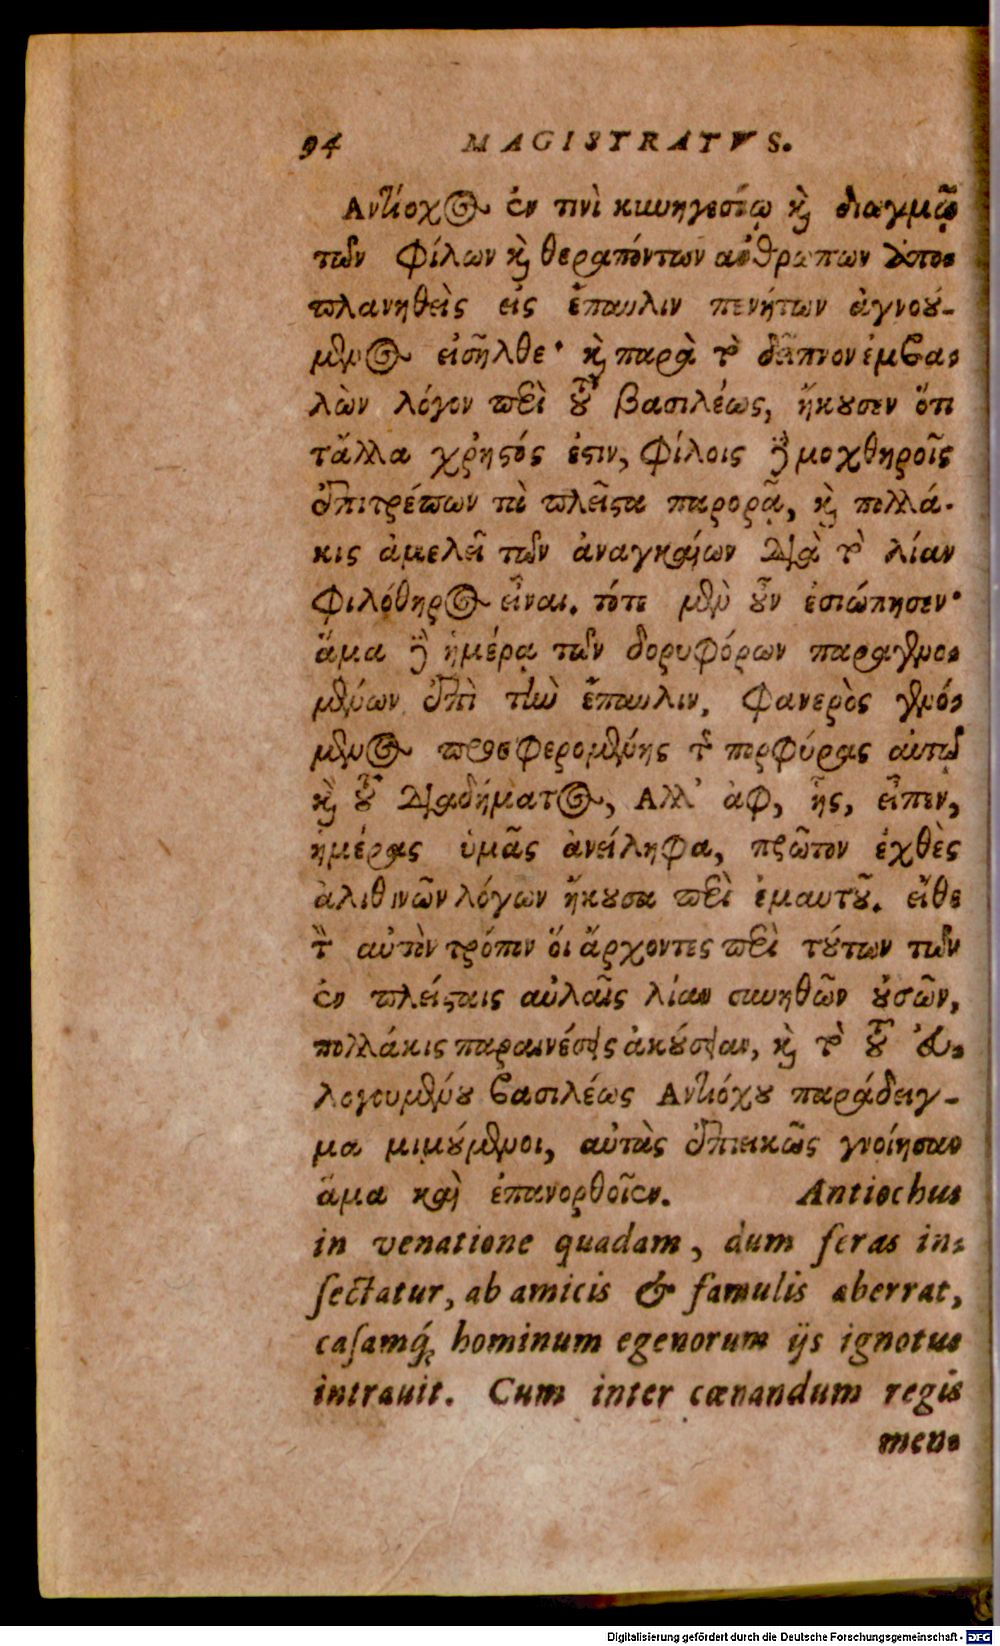 94 MAGISTRATVS.
Ἀντίοχος ἐν τινὶ κυνηγεσίῳ κὶ διωγμῷ
τῶν φίλων κὶ θεραπόντων ἀνθρώπων ἀπο-
πλανηθεὶς εἰς ἔπαυλιν πενήτων ἀγνοού-
μενος εἰσῆλθε· κὶ παρὰ τὸ δεῖπνον ἐμβα-
λὼν λόγον περὶ τοῦ βασιλέως, ἤκουσεν ὅτι
τἄλλα χρηστός ἐστιν, φίλοις δὲ μοχθηροῖς
ἐπιτρέπων τὰ πλεῖστα παρορᾷ, κὶ πολλά-
κις ἀμελεῖ τῶν ἀναγκαίων διὰ τὸ λίαν
φιλόθηρος εἶναι. τότε μὲν οὖν ἐσιώπησεν·
ἅμα δὲ ἡμέρᾳ τῶν δορυφόρων παραγενο-
μένων ἐπὶ τὴν ἔπαυλιν, φανερὸς γενό-
μενος προσφερομένης τῆς πορφύρας αὐτῷ
κὶ τοῦ διαδήματος, Ἀλλ' ἀφ, ἧς, εἶπεν,
ἡμέρας ὑμᾶς ἀνείληφα, πρῶτον ἐχθὲς
ἀλιθινῶν λόγων ἤκουσα περὶ ἐμαυτοῦ. εἴθε
τὸν αὐτὸν τρόπον οἱ ἄρχοντες περὶ τούτων τῶν
ἐν πλείσταις αὐλαῖς λίαν συνηθῶν οὐσῶν,
πολλάκις παραινέσεις ἀκούσειαν, κὶ τὸ τοῦ εὐ-
λογουμένου βασιλέως Ἀντιόχου παράδειγ-
μα μιμούμενοι, αὐτὰς ἐπιεικῶς γνοίησαν
ἅμα καὶ ἐπανορθοῖεν. Antiochus
in venatione quadam, dum feras in-
sectatur, ab amicis & famulis aberrat,
casamq́; hominum egenorum ijs ignotus
intrauit. Cum inter cœnandum regis
men-
Digitalisierung gefördert durch die Deutsche Forschungsgemeinschaft - DFG